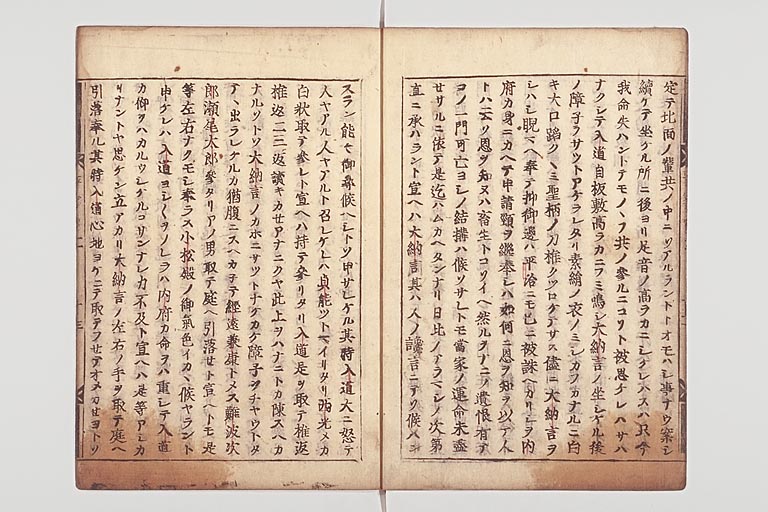 定テ北面ノ輩共ノ中ニソアルラントトオモハシ事ナウ案シ
續ケテ坐ケル所ニ後ヨリ足音ノ高ラカニシケレハスハ只今
我命失ハントテモノヽフ共ノ參ルニコソト被思ケレハサハ
ナクシテ入道自板敷高ラカニフミ鳴シ大納言ノ坐シケル後
ノ障子ヲサツトアケラレタリ素絹ノ衣ノミシカラカナルニ白
キ大口踏クヽミ聖柄ノ刀推クツロケテサス儘ニ大納言ヲ
シハシ睨ヘ奉テ抑御邊ハ平治ニモ已ニ被誅ヘカリシヲ内
府カ身ニカヘテ申請頸ヲ繼奉シハ如何ニ恩ヲ知ヲ以テ人
トハ云ソ恩ヲ知ヌハ畜生トコソイヘ然ルヲナニノ遺恨有テ
コノ一門可亡ヨシノ結構ハ候ソサレトモ當家ノ運命未盡
セサルニ依テ是迄ハムカヘタンナリ日比ノアラマシノ次第
直ニ承ハラント宣ヘハ大納言其ハ人ノ讒言ニテソ候ハン
スラン能々御尋候ヘシトソ申サレケル其時入道大ニ怒テ
人ヤアル人ヤアルト召レケレハ貞能ツトマイリタリ西光メカ
白状取テ參レト宣ヘハ持テ參リタリ入道是ヲ取テ推返
推返二三返讀キカセアナニクヤ此上ヲハナニトカ陳スヘカ
ナルソトソ大納言ノカホニサツトナケカケ障子ヲチヤウトタ
テヽ出ラレケルカ猶腹ニスヘカ子テ經遠兼康トメス難波次
郎瀬尾太郎參タリアノ男取テ庭ヘ引落セト宣ヘトモ是
等左右ナクモシ奉ラス小松殿ノ御氣色イカヽ候ヤラント
申ケレハ入道ヨシ〱ヲノレラハ内府カ命ヲハ重シテ入道
カ仰ヲハカルウシケルコサンナレ力不及ト宣ヘハ是等アシカ
リナントヤ思ケン立アカリ大納言ノ左右ノ手ヲ取テ庭ヘ
引落奉ル其時入道心地ヨケニテ取テフセテオメカセヨトソ